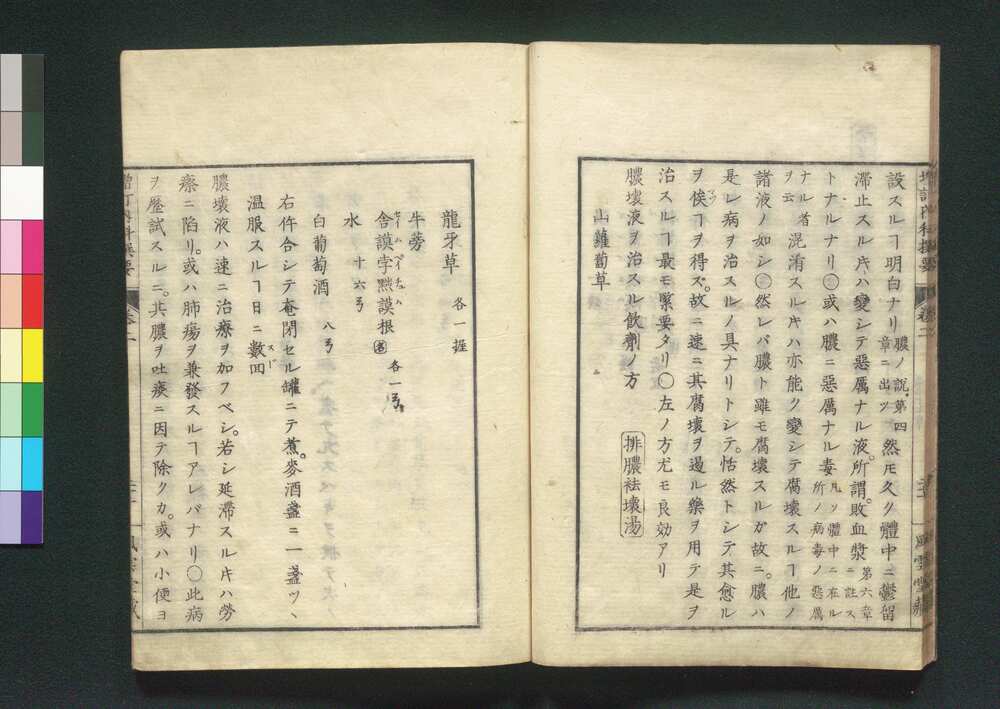 設スルヿ明白ナリ 膿ノ說第四章ニ出ツ 然𪜈久ク體中ニ鬱留
滯止スル𪜈ハ變シテ惡厲ナル液所謂敗血漿 第六章ニ註ス
トナルナリ〇或ハ膿ニ惡厲ナル毒 凡ソ體中ニ在ル所ノ病毒ノ惡厲
ナル者ヲ云 混淆スル𪜈ハ亦能ク變シテ腐壞スルヿ他ノ
諸液ノ如シ〇然レバ膿ト雖モ腐壞スルガ故ニ膿ハ
是レ病ヲ治スルノ具ナリトシテ怙然トシテ其愈ル
ヲ俟ヿヲ得ス故ニ速ニ其腐壞ヲ遏ル藥ヲ用テ是ヲ
治スルヿ最モ緊要タリ〇左ノ方尤モ良効アリ
膿壞液ヲ治スル飮劑ノ方 排膿袪壞湯
山蘿蔔草
龍牙草 各一握
牛蒡
舎謨孛㸃謨根 各一弓
水 十六弓
白葡萄酒 八弓
右件合シテ奄閉セル罐ニテ煮麥酒盞ニ一盞ツヽ
溫服スルヿ日ニ數回
膿壞液ハ速ニ治療ヲ加フベシ若シ延滯スル𪜈ハ勞
瘵ニ陷リ或ハ肺瘍ヲ兼發スルヿアレバナリ〇此病
ヲ歷試スルニ其膿ヲ吐痰ニ因テ除クカ或ハ小便ヨ